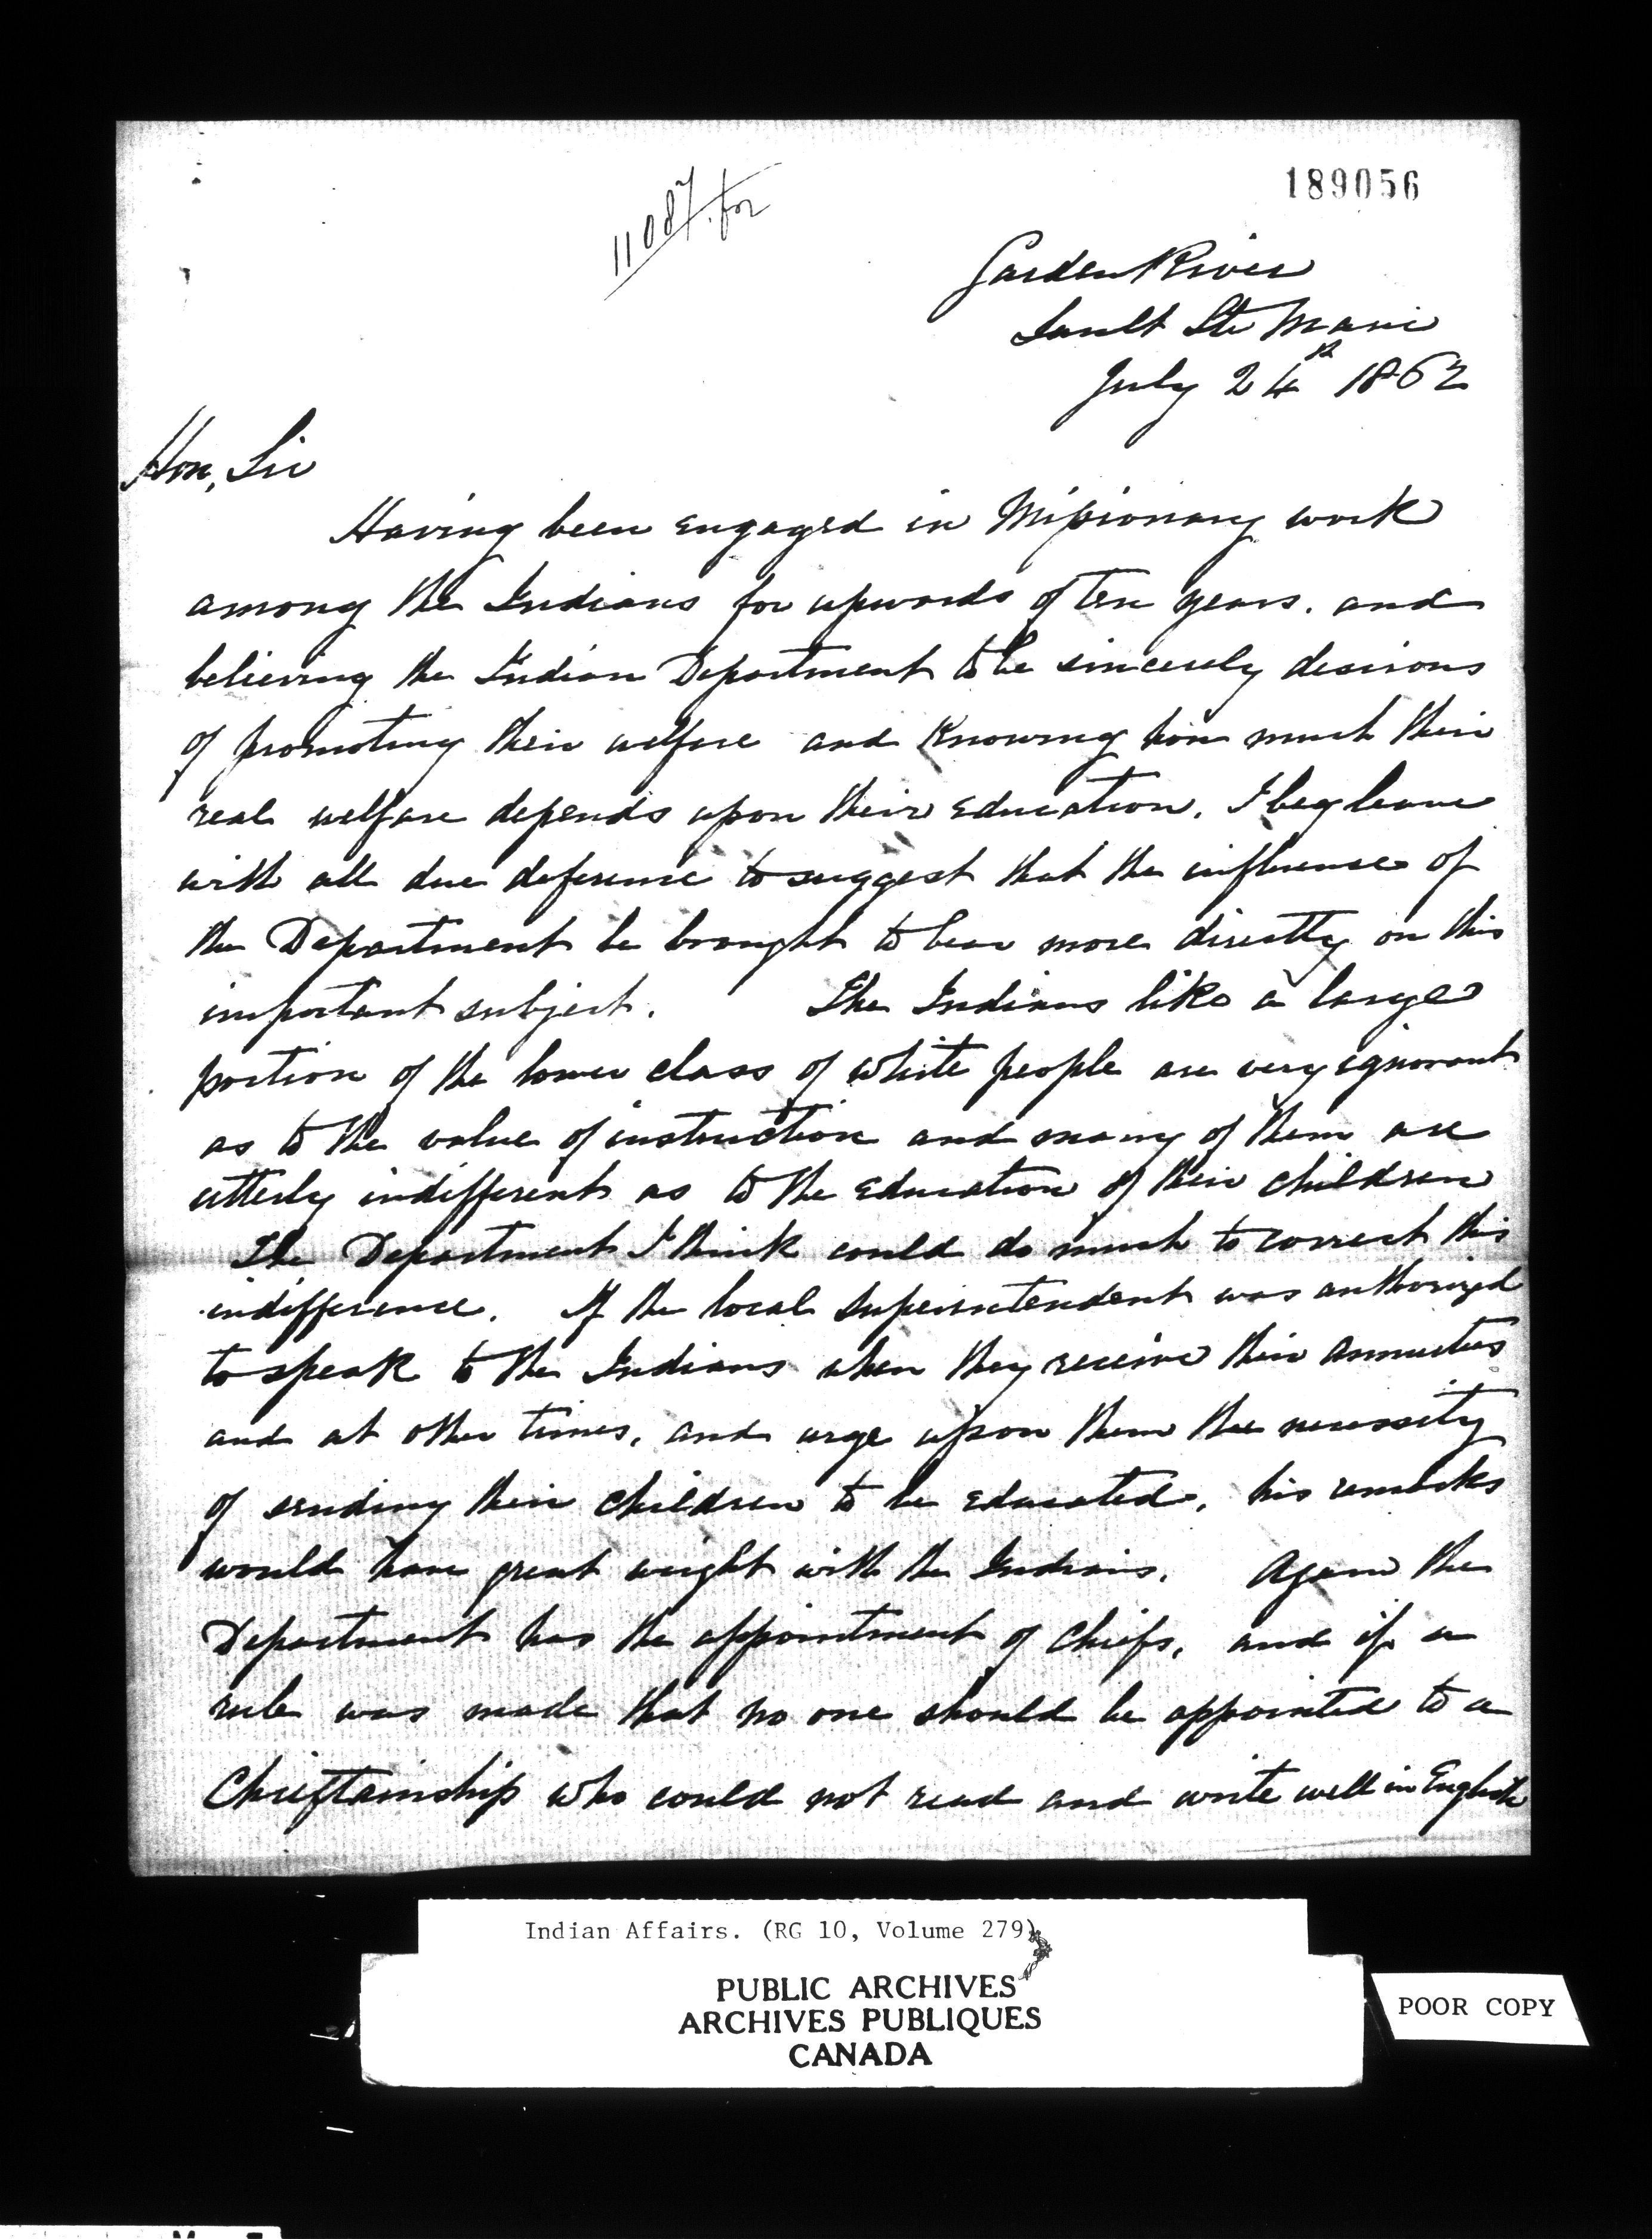 189056
11087. for
Garden River
Sault Ste Marie
July 24th 1862
Hon, Sir
Having been engaged in Missionary work
among the Indians for upwards of ten years. and
believing the Indian Department to be sincerely desirous
of promoting their welfare and knowing how much their
real welfare depends upon their education, I beg leave
with all due deference to suggest that the influence of
the Department be brought to bear more directly on this
important subject. The Indians like a large
portion of the lower class of white people are very ignorant
as to the value of instruction and many of them are
utterly indifferent as to the education of their children
The Department I think could do much to correct this
indifference. If the local Superintendent was authorized
to speak to the Indians when they receive their annuities
and at other times, and urge upon them the necessity
of sending their children to be educated, his remarks
would have great weight with the Indians. Again the
Department has the appointment of Chiefs, and if a
rule was made that no one should be appointed to a
Chieftainship who could not read and write well in English
Indian Affairs. (RG 10, Volume 279)
PUBLIC ARCHIVES
ARCHIVES PUBLIQUES
CANADA
POOR COPY